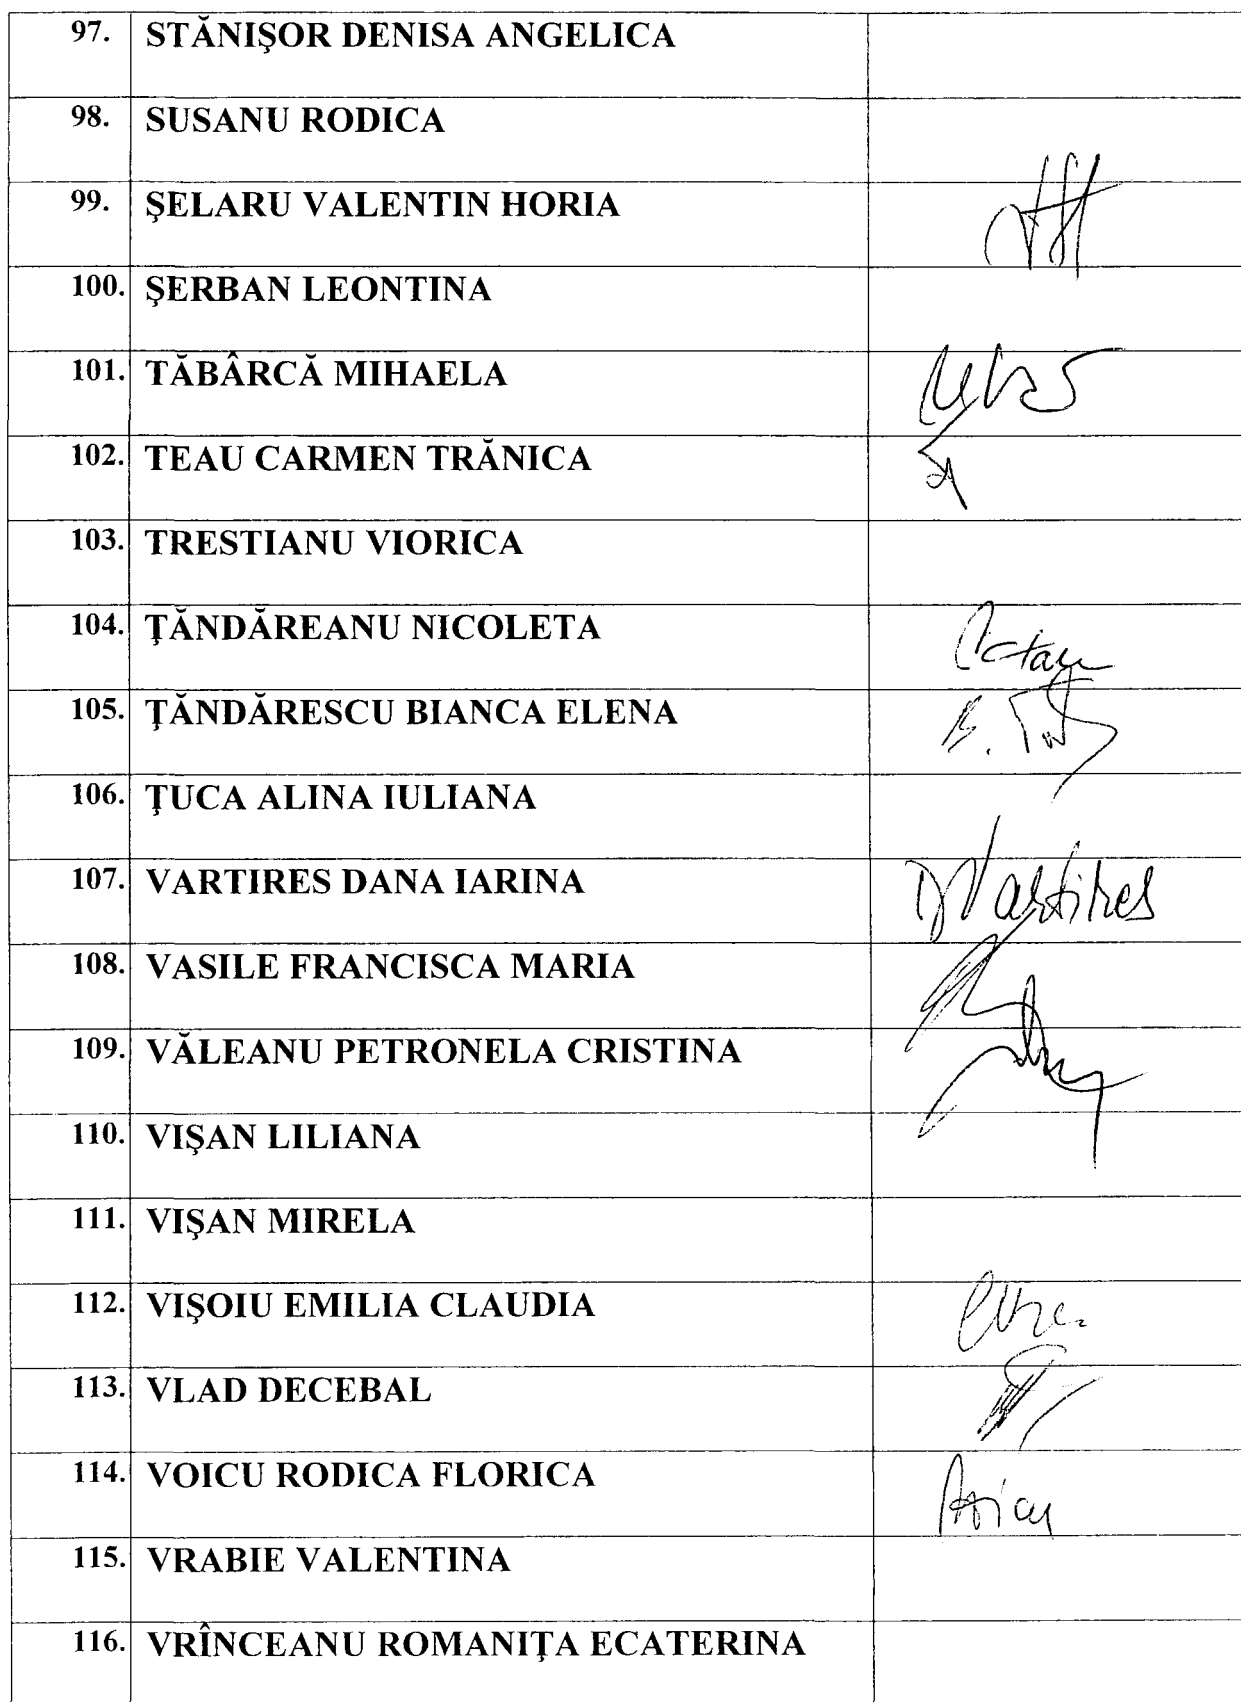 97. STĂNIŞOR DENISA ANGELICA
98. SUSANU RODICA
99. ŞELARU VALENTIN HORIA
100. ŞERBAN LEONTINA
101. TĂBÂRCĂ MIHAELA
102. TEAU CARMEN TRĂNICA
103. TRESTIANU VIORICA
104. ŢĂNDĂREANU NICOLETA
105. ŢĂNDĂRESCU BIANCA ELENA
106. ŢUCA ALINA IULIANA
107. VARTIRES DANA IARINA DVartires
108. VASILE FRANCISCA MARIA
109. VĂLEANU PETRONELA CRISTINA
110. VIŞAN LILIANA
111. VIŞAN MIRELA
112. VIŞOIU EMILIA CLAUDIA
113. VLAD DECEBAL
114. VOICU RODICA FLORICA
115. VRABIE VALENTINA
116. VRÎNCEANU ROMANIŢA ECATERINA